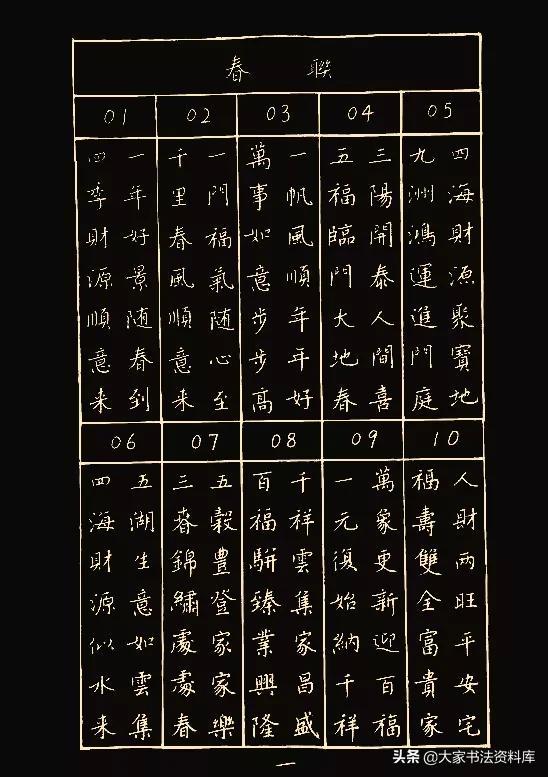 春聯
01
一年好景随春到
四季財源順意来
02
一門福氣随心至
千里春風順意来
03
一帆風順年年好
萬事如意步步高
04
三陽開泰人間喜
五福臨門大地春
05
四海財源聚寶地
九洲鴻運進門庭
06
五湖生意如雲集
四海財源似水来
07
五穀豊登家家樂
三春錦繡處處春
08
千祥雲集家昌盛
百福駢臻業興隆
09
萬象更新迎百福
一元復始納千祥
10
人財两旺平安宅
福壽雙全富貴家
一
头条 @大家书法资料库